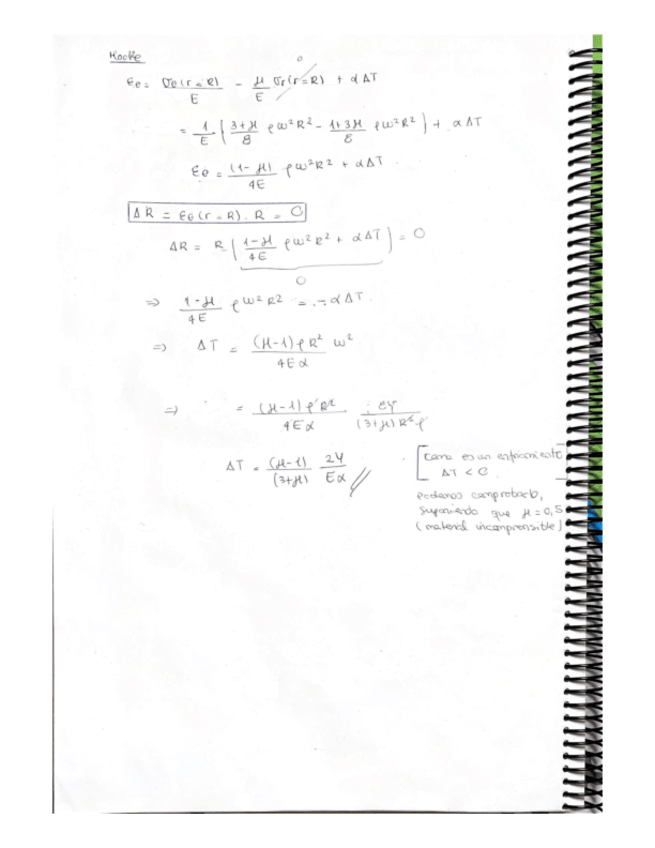 Hooke
εθ = σθ(r=R)/E - μ/E σr(r=R) + αΔT
0
= 1/E [ 3+μ/8 ρω²R² - 1+3μ/8 ρω²R² ] + αΔT
εθ = (1-μ)/4E ρω²R² + αΔT.
ΔR = εθ(r=R). R = 0
ΔR = R [ 1-μ/4E ρω²R² + αΔT ] = 0
0
⇒ 1-μ/4E ρω²R² = - αΔT.
⇒ ΔT = (μ-1)ρR²/4Eα ω²
⇒ = (μ-1)ρR²/4Eα . 8Y/(3+μ)R²ρ
ΔT = (μ-1)/(3+μ) 2Y/Eα //
[ Como es un enfriamiento
ΔT < 0 ]
Podemos comprobarlo,
suponiendo que μ = 0,5
(material incomprensible)